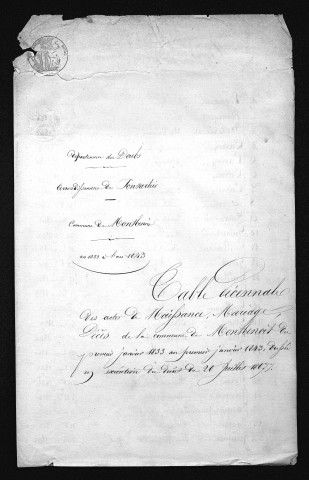 Département du Doubs
Arrondissement de Pontarlier
Commune de Montbenoit
an 1833 à l'an 1843
Table décennale
des actes de Naissance, Mariage,
Décès de la commune de Montbenoit du
premier janvier 1833 au premier janvier 1843, dressée
en exécution du décret du 20 Juillet 1807.